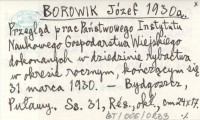 BOROWIK Józef 1930a.
Przegląd prac Państwowego Instytutu
Naukowego Gospodarstwa Wiejskiego
dokonanych w dziedzinie rybactwa
w okresie rocznym, kończącym się
31 marca 1930. — Bydgoszcz,
Puławy. Ss. 31, Rés., okł., cm 24x17.